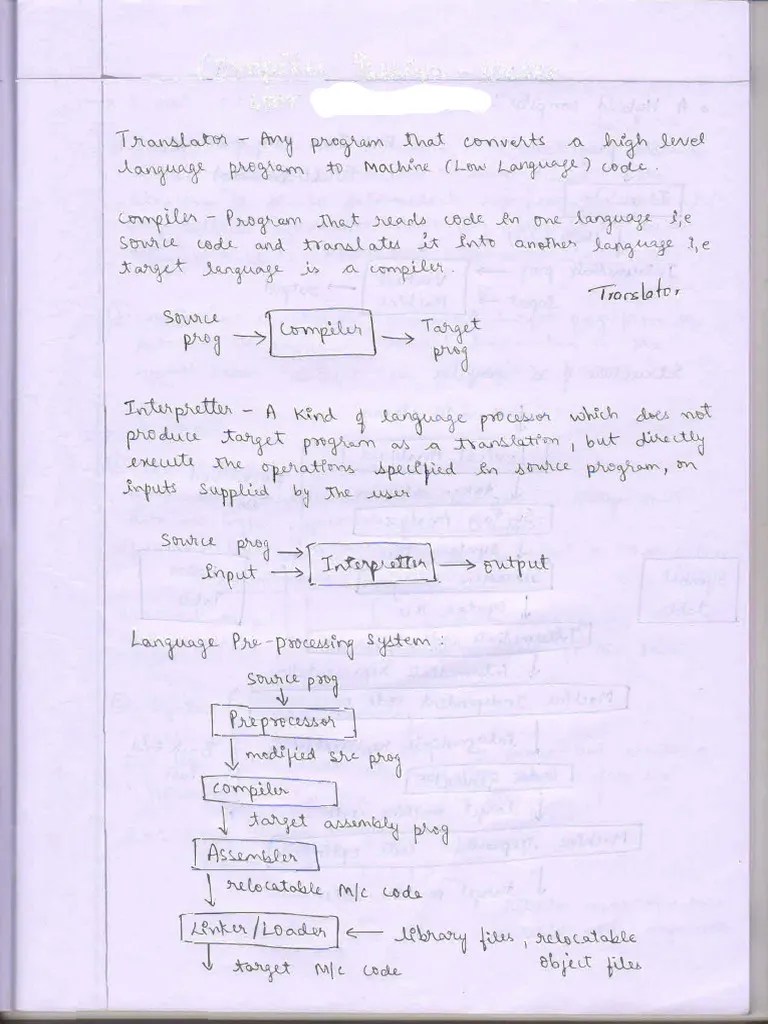 Translator - Any program that converts a high level
language program to Machine (Low Language) code.
Compiler - Program that reads code in one language i,e
source code and translates it into another language i,e
target language is a compiler.
Translator.
Source prog → Compiler → Target prog
Interpretter - A kind of language processor which does not
produce target program as a translation, but directly
execute the operations specified in source program, on
inputs supplied by the user
Source prog →
Input → Interpretter → output
Language Pre-processing System :
Source prog
Preprocessor
modified src prog
Compiler
target assembly prog
Assembler
relocatable M/c code
Linker/Loader ← library files, relocatable
object files
target M/c code